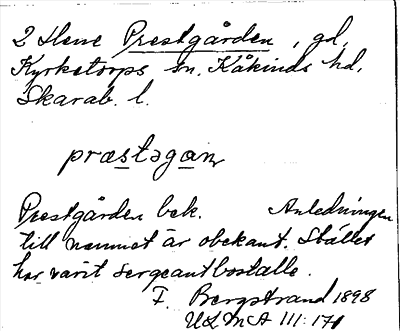 2 Stene Prestgården, gd,
Kyrketorps sn. Kåkinds hd,
Skarab. l.
præstɘgan,
Prestgården bek. Anledningen
till namnet är obekant. Stället
har varit sergeantboställe.
F. Bergstrand 1898
ULMA 111:171